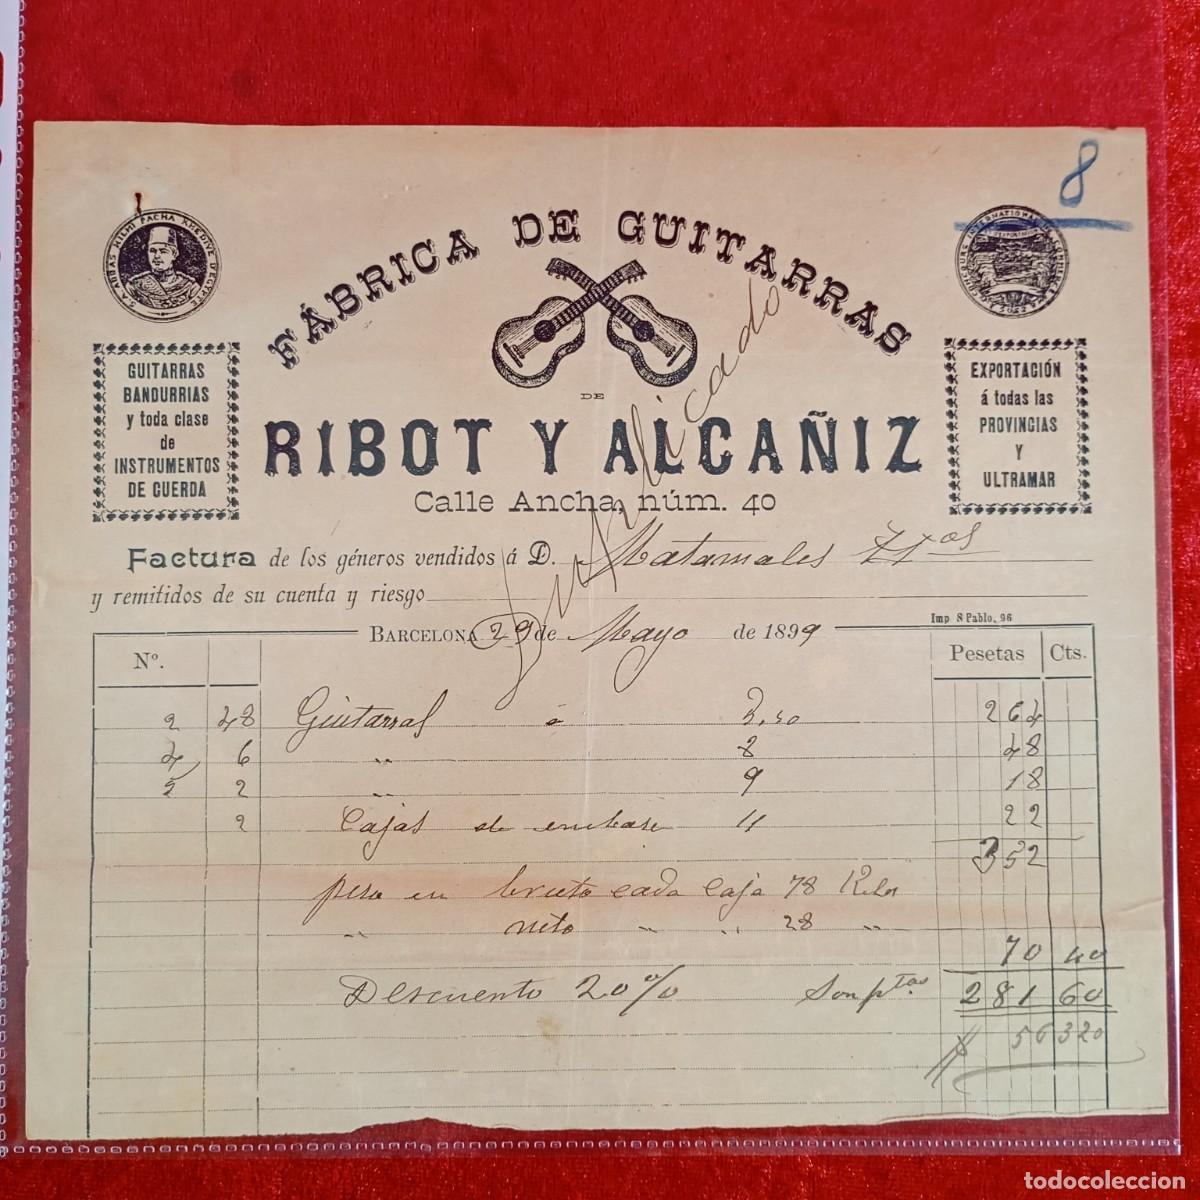 8
S.A. ABBAS HILMI PACHA KHEDIVE D'EGYPTE
FÁBRICA DE GUITARRAS
DE
RIBOT Y ALCAÑIZ
Calle Ancha, núm. 40
GUITARRAS
BANDURRIAS
y toda clase
de
INSTRUMENTOS
DE CUERDA
EXPORTACIÓN
á todas las
PROVINCIAS
Y
ULTRAMAR
Factura de los géneros vendidos á D. Matamales
y remitidos de su cuenta y riesgo
Imp S Pablo, 96
BARCELONA 29 de Mayo de 1899
Nº. Pesetas Cts.
2 48 Guitarras a 264
4 6 " 8 48
2 2 " 9 18
2 Cajas de embase 11 22
352
peso en bruto cada Caja 78 Kilos
" neto " " 28 "
70 40
Descuento 20% Son ptas 281 60
56 320
todocoleccion